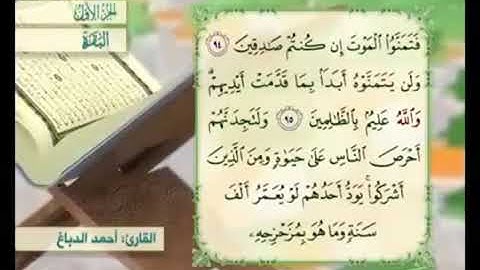 الجزء الأول
البقرة
فَتَمَنَّوُا۟ ٱلْمَوْتَ إِن كُنتُمْ صَـٰدِقِينَ ٩٤
وَلَن يَتَمَنَّوْهُ أَبَدًۢا بِمَا قَدَّمَتْ أَيْدِيهِمْ ۗ
وَٱللَّهُ عَلِيمٌۢ بِٱلظَّـٰلِمِينَ ٩٥ وَلَتَجِدَنَّهُمْ
أَحْرَصَ ٱلنَّاسِ عَلَىٰ حَيَوٰةٍ وَمِنَ ٱلَّذِينَ
أَشْرَكُوا۟ ۚ يَوَدُّ أَحَدُهُمْ لَوْ يُعَمَّرُ أَلْفَ
سَنَةٍ وَمَا هُوَ بِمُزَحْزِحِهِۦ
القارئ: أحمد الدباغ